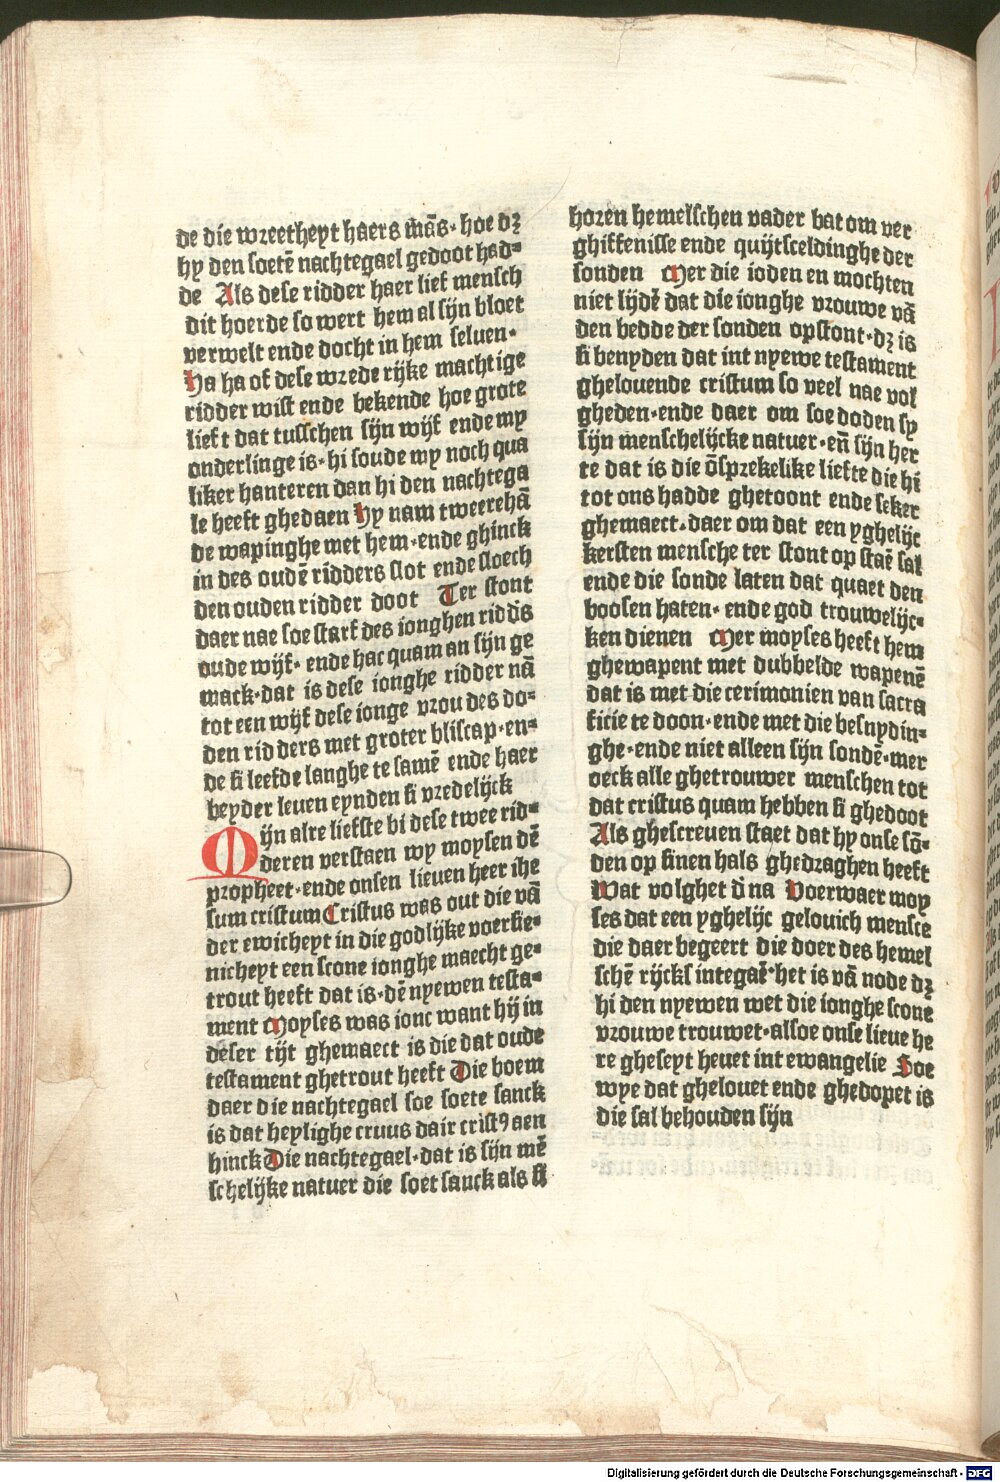 de die wreetheyt haers mãs· hoe dꝫ
hy den soetẽ nachtegael gedoot had⸗
de Als dese ridder haer lief mensch
dit hoerde so wert hem al sijn bloet
verwelt ende docht in hem seluen·
Ha ha of dese wrede rijke machtige
ridder wist ende bekende hoe grote
lieft dat tusschen sijn wijf ende my
onderlinge is· hi soude my noch qua
liker hanteren dan hi den nachtega
le heeft ghedaen Hy nam tweerehã
de wapinghe met hem· ende ghinck
in des oudẽ ridders slot ende sloech
den ouden ridder doot Ter stont
daer nae soe starf des ionghen ridders
oude wijf· ende hac quam an sijn ge
mack· dat is dese ionghe ridder nã
tot een wijf dese ionge vrou des do⸗
den ridders met groter bliscap· en⸗
de si leefde langhe te samẽ ende haer
beyder leuen eynden si vredelijck
Mijn alre liefste bi dese twee rid⸗
deren verstaen wy moysen dẽ
propheet· ende onsen lieuen heer ihe
sum cristum Cristus was out die vã
der ewicheyt in die godlijke voersie⸗
nicheyt een scone ionghe maecht ge⸗
trout heeft dat is· dẽ nyewen testa⸗
ment Moyses was ionc want hij in
deser tijt ghemaect is die dat oude
testament ghetrout heeft Die boem
daer die nachtegael soe soete sanck
is dat heylighe cruus dair cristꝰ aen
hinck Die nachtegael· dat is sijn mẽ
schelijke natuer die soet sanck als si
horen hemelschen vader bat om ver
ghiffenisse ende quijtsceldinghe der
sonden Mer die ioden en mochten
niet lijdẽ dat die ionghe vrouwe vã
den bedde der sonden opstont· dꝫ is
si benyden dat int nyewe testament
ghelouende cristum so veel nae vol
gheden· ende daer om soe doden sy
sijn menschelijcke natuer· eñ sijn her
te dat is die õsprekelike liefte die hi
tot ons hadde ghetoont ende seker
ghemaect· daer om dat een yghelijc
kersten mensche ter stont op staẽ sal
ende die sonde laten dat quaet den
boosen haten· ende god trouwelijc⸗
ken dienen Mer moyses heeft hem
ghewapent met dubbelde wapenẽ
dat is met die cerimonien van sacra
ficie te doon· ende met die besnydin⸗
ghe· ende niet alleen sijn sondẽ· mer
oeck alle ghetrouwer menschen tot
dat cristus quam hebben si ghedoot
Als ghescreuen staet dat hy onse sõ⸗
den op sinen hals ghedraghen heeft
Wat volghet d̃ na Voerwaer moy
ses dat een yghelijc gelouich mensce
die daer begeert die doer des hemel
schẽ rijcks integaẽ· het is vã node dꝫ
hi den nyewen wet die ionghe scone
vrouwe trouwet· alsoe onse lieue he
re gheseyt heuet int ewangelie Soe
wye dat ghelouet ende ghedopet is
die sal behouden sijn
Digitalisierung gefördert durch die Deutsche Forschungsgemeinschaft - DFG